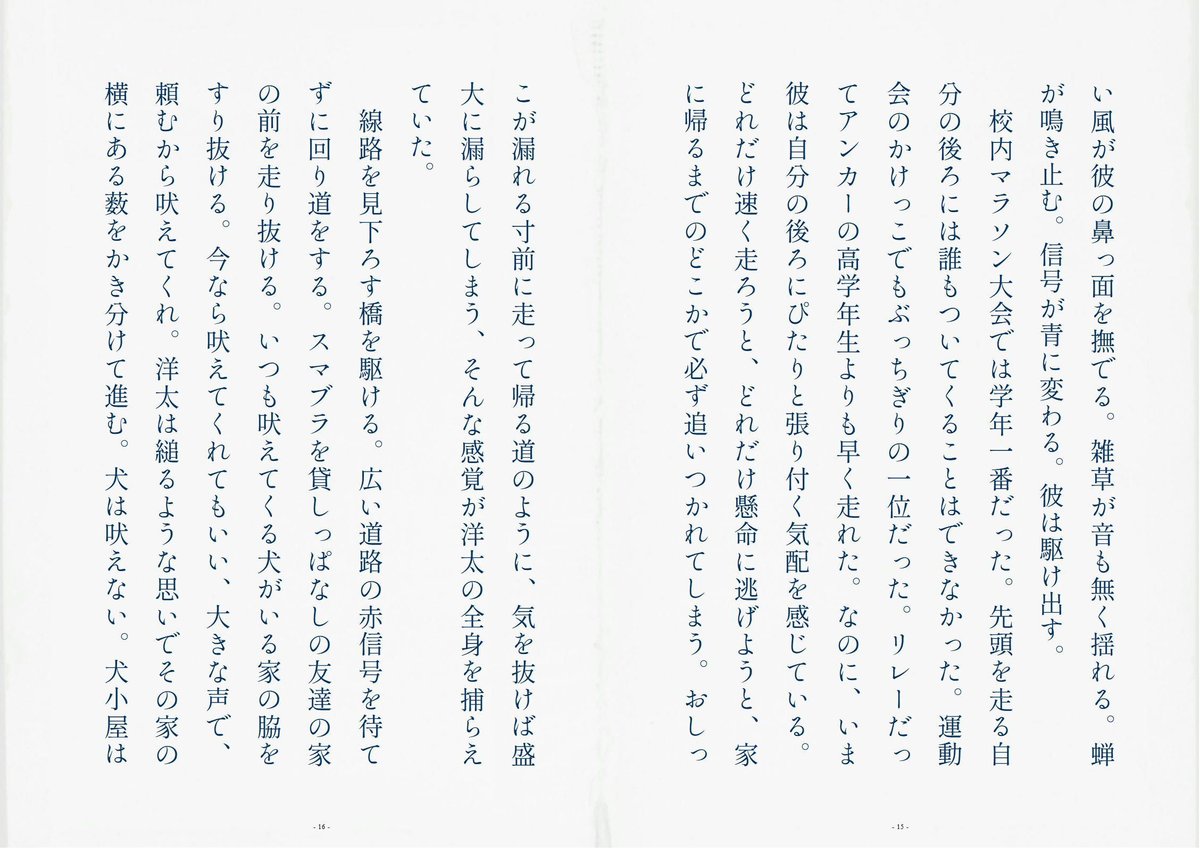 い風が彼の鼻っ面を撫でる。雑草が音も無く揺れる。蝉
が鳴き止む。信号が青に変わる。彼は駆け出す。
校内マラソン大会では学年一番だった。先頭を走る自
分の後ろには誰もついてくることはできなかった。運動
会のかけっこでもぶっちぎりの一位だった。リレーだっ
てアンカーの高学年生よりも早く走れた。なのに、いま
彼は自分の後ろにぴたりと張り付く気配を感じている。
どれだけ速く走ろうと、どれだけ懸命に逃げようと、家
に帰るまでのどこかで必ず追いつかれてしまう。おしっ
- 15 -
こが漏れる寸前に走って帰る道のように、気を抜けば盛
大に漏らしてしまう、そんな感覚が洋太の全身を捕らえ
ていた。
線路を見下ろす橋を駆ける。広い道路の赤信号を待て
ずに回り道をする。スマブラを貸しっぱなしの友達の家
の前を走り抜ける。いつも吠えてくる犬がいる家の脇を
すり抜ける。今なら吠えてくれてもいい、大きな声で、
頼むから吠えてくれ。洋太は縋るような思いでその家の
横にある薮をかき分けて進む。犬は吠えない。犬小屋は
- 16 -